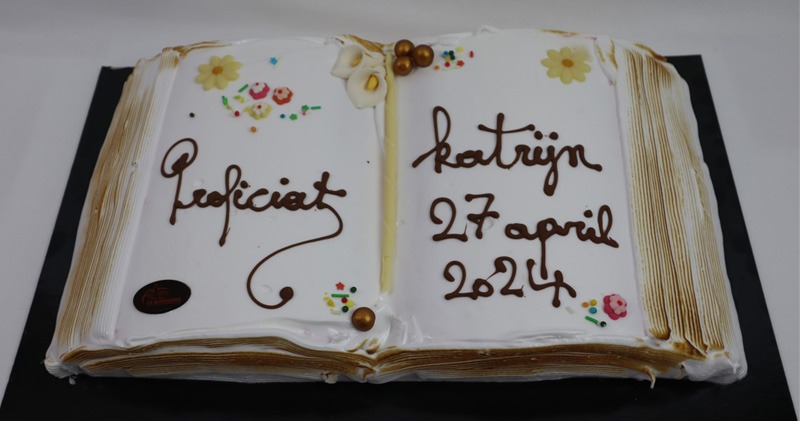 Proficiat
Katrijn
27 april
2024